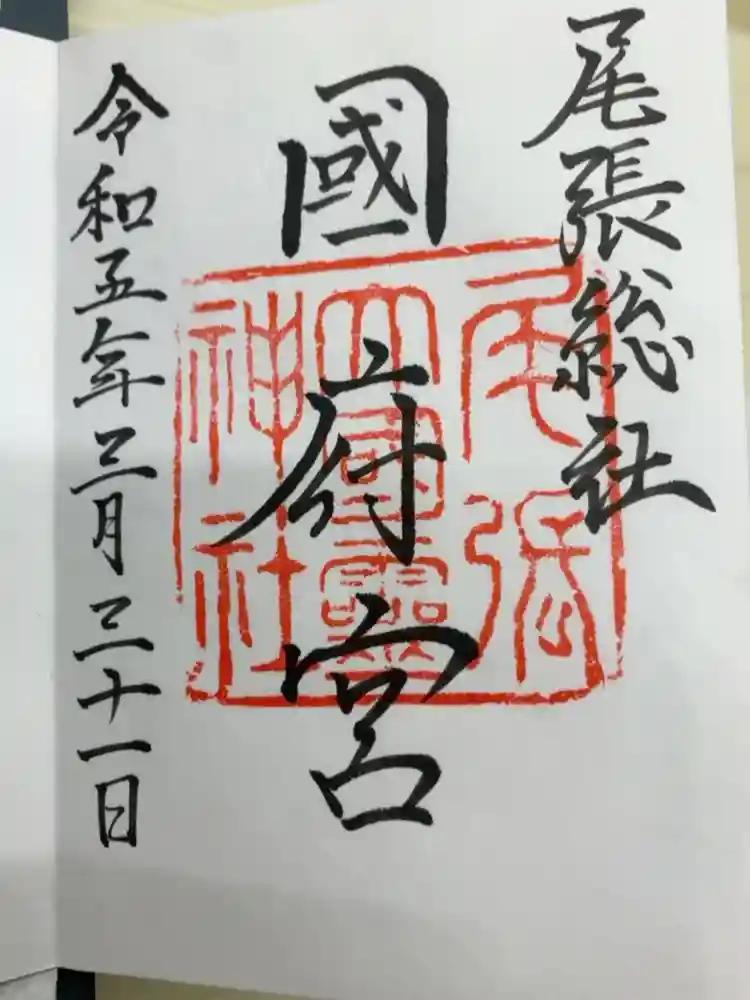 尾張総社
國府宮
尾張
大國霊
神社
令和五年三月三十一日